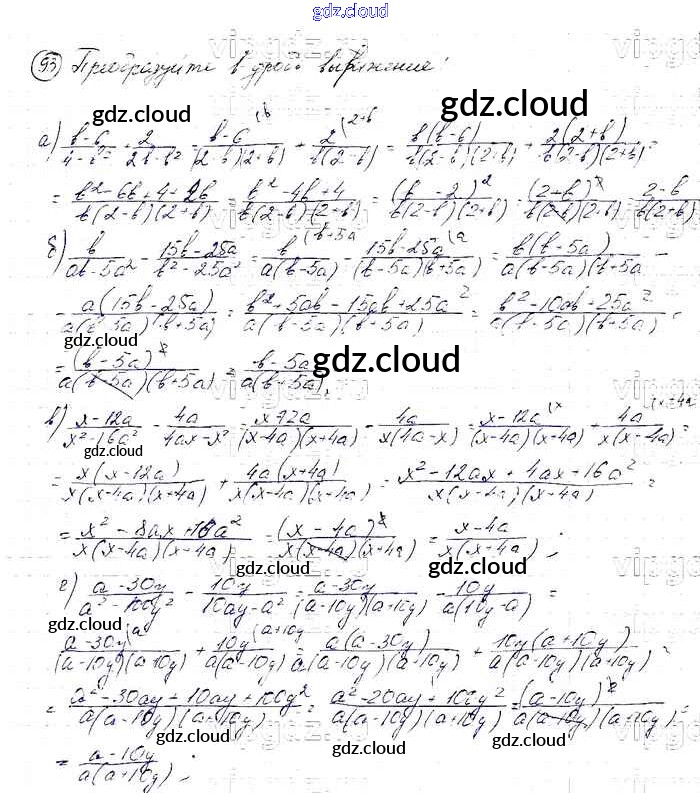 gdz.cloud
93) Преобразуйте в дробь выражение:
gdz.cloud
gdz.cloud
а) (b-6)/(4-b²) + 2/(2b-b²) = (b-6)/((2-b)(2+b)) + 2/(b(2-b)) = b(b-6)/(b(2-b)(2+b)) + 2(2+b)/(b(2-b)(2+b)) =
= (b²-6b+4+2b)/(b(2-b)(2+b)) = (b²-4b+4)/(b(2-b)(2+b)) = (b-2)²/(b(2-b)(2+b)) = (2-b)/(b(2+b))
б) b/(ab-5a²) - (15b-25a)/(b²-25a²) = b/(a(b-5a)) - (15b-25a)/((b-5a)(b+5a)) = b(b-5a)/(a(b-5a)(b+5a) -
- a(15b-25a)/(a(b-5a)(b+5a)) = (b²+5ab-15ab+25a²)/(a(b-5a)(b+5a)) = (b²-10ab+25a²)/(a(b-5a)(b+5a)) =
gdz.cloud
= (b-5a)²/(a(b-5a)(b+5a)) = (b-5a)/(a(b+5a));
в) (x-12a)/(x²-16a²) - 4a/(4ax-x²) = x-12a/((x-4a)(x+4a)) - 4a/(x(4a-x)) = (x-12a)/((x-4a)(x+4a)) + 4a/(x(x-4a)) =
gdz.cloud
= x(x-12a)/(x(x-4a)(x+4a)) + 4a(x+4a)/(x(x-4a)(x+4a)) = (x²-12ax+4ax-16a²)/(x(x-4a)(x+4a)) =
= (x²-8ax+16a²)/(x(x-4a)(x+4a)) = (x-4a)²/(x(x-4a)(x+4a)) = (x-4a)/(x(x+4a));
gdz.cloud
gdz.cloud
г) (a-30y)/(a²-100y²) - 10y/(10ay-a²) = (a-30y)/((a-10y)(a+10y)) - 10y/(a(10y-a)) =
(a-30y)/((a-10y)(a+10y)) + 10y/(a(a-10y)) = a(a-30y)/(a(a-10y)(a+10y)) + 10y(a+10y)/(a(a-10y)(a+10y)) =
= (a²-30ay+10ay+100y²)/(a(a-10y)(a+10y)) = (a²-20ay+100y²)/(a(a-10y)(a+10y)) = (a-10y)²/(a(a-10y)(a+10y)) =
gdz.cloud
gdz.cloud
gdz.cloud
= (a-10y)/(a(a+10y));